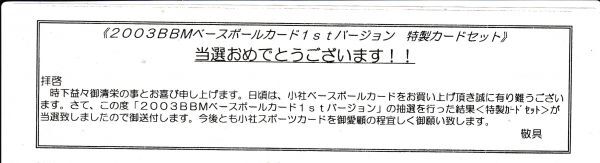 《２００３ＢＢＭベースボールカード１ｓｔバージョン　特製カードセット》
当選おめでとうございます！！
拝啓
時下益々御清栄の事とお喜び申し上げます。日頃は、小社ベースボールカードをお買い上げ頂き誠に有り難うござい
ます。さて、この度「２００３ＢＢＭベースボールカード１ｓｔバージョン」の抽選を行った結果＜特製ｶｰﾄﾞｾｯﾄ＞が
当選致しましたので御送付します。今後とも小社スポーツカードを御愛顧の程宜しく御願い致します。
敬具